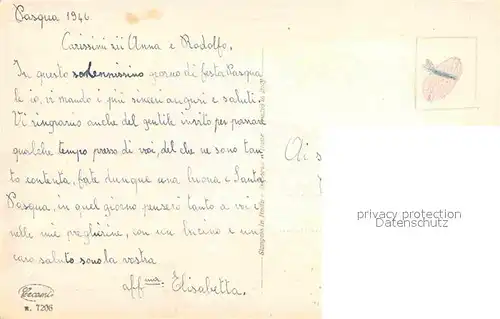 Pasqua 1946
Carissimi zii Anna e Rodolfo.
In questo solennissimo giorno di festa Pasqua
le io, vi mando i più sinceri auguri e saluti.
Vi ringrazio anche del gentile invito per passare
qualche tempo presso di voi, del che ne sono tan
to contenta, fate dunque una buona e Santa
Pasqua, in quel giorno penserò tanto a voi e
nelle mie preghierine, con un bacino e un
caro saluto sono la vostra
aff.ma Elisabetta.
Ai s
privacy protection
Datenschutz
Cecami
N. 7206